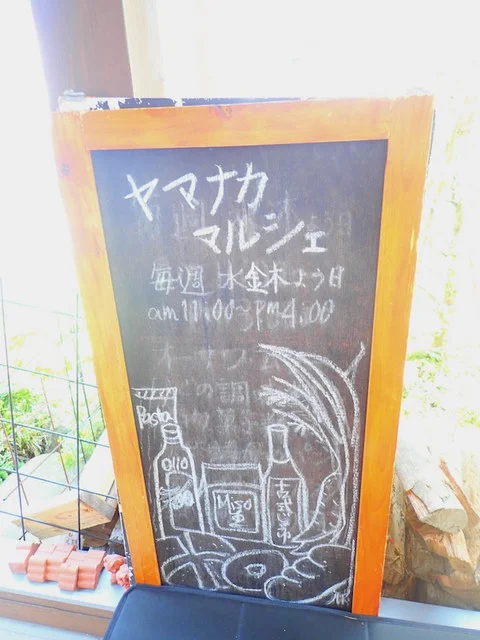 ヤマナカ
マルシェ
毎週 水金木よう日
am11:00~PM4:00
Pasta
Olio
Miso